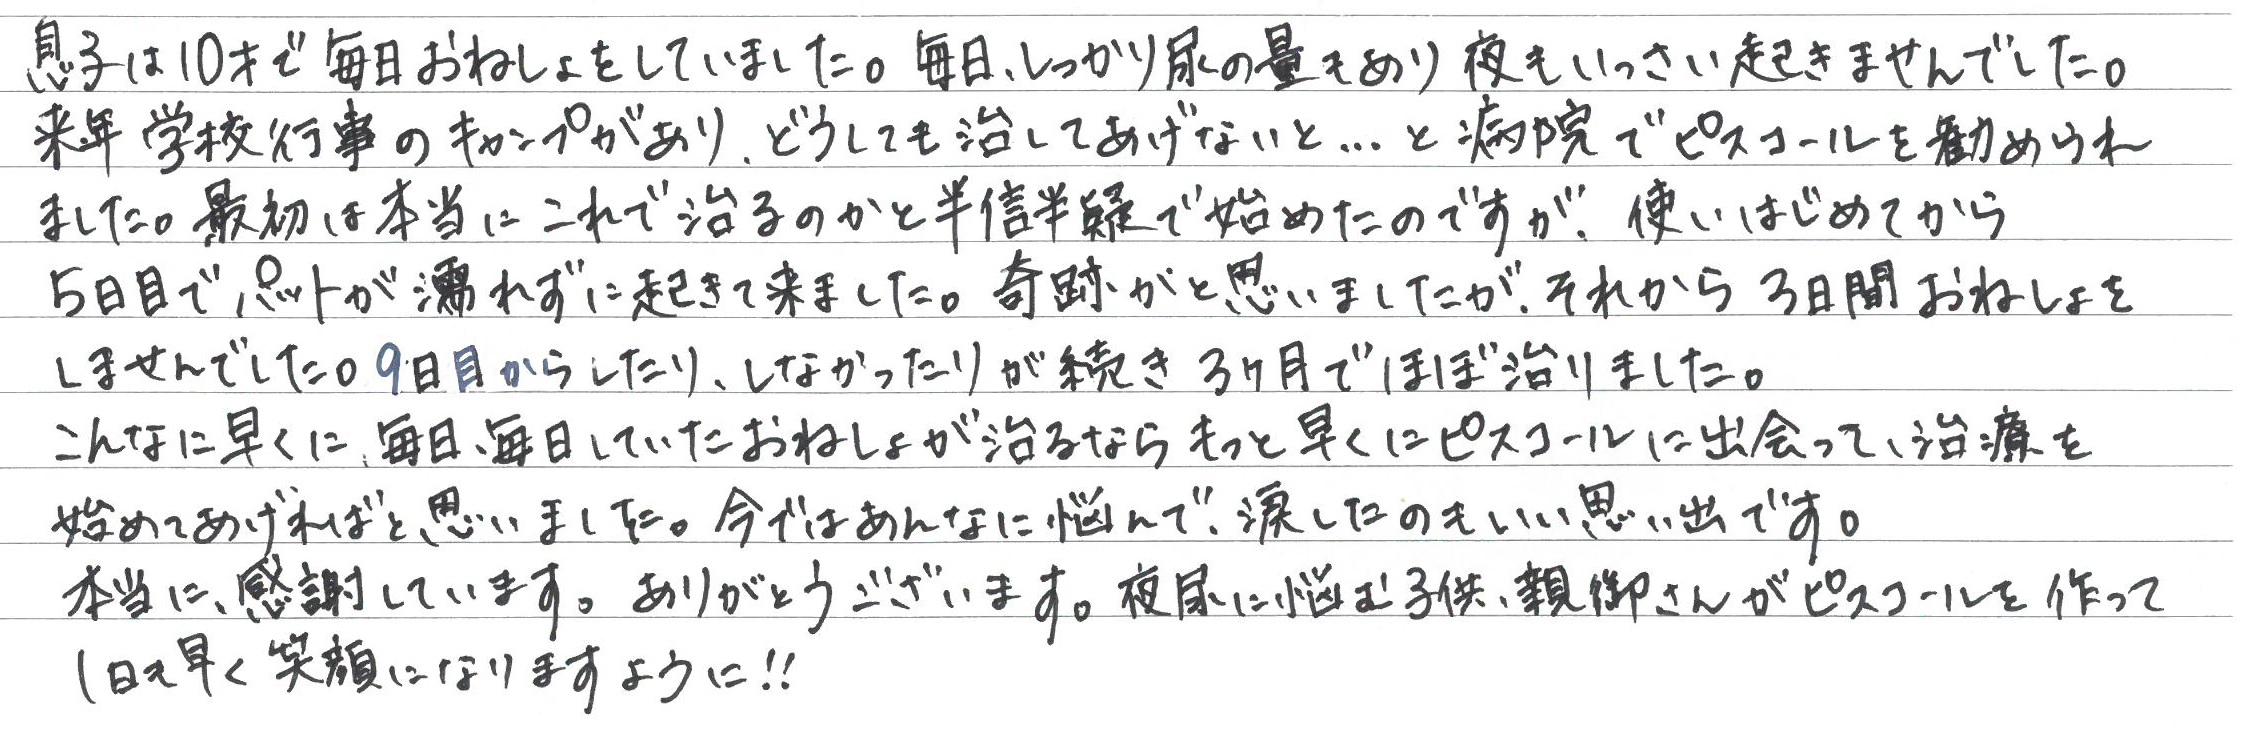 息子は10才で毎日おねしょをしていました。毎日、しっかり尿の量もあり夜もいっさい起きませんでした。
来年学校行事のキャンプがあり、どうしても治してあげないと…と病院でピスコールを勧められ
ました。最初は本当にこれで治るのかと半信半疑で始めたのですが、使いはじめてから
5日目でパットが濡れずに起きて来ました。奇跡がと思いましたが、それから3日間おねしょを
しませんでした。9日目からしたり、しなかったりが続き3ヶ月でほぼ治りました。
こんなに早くに、毎日、毎日していたおねしょが治るならもっと早くにピスコールに出会って、治療を
始めてあげればと思いました。今ではあんなに悩んで、涙したのもいい思い出です。
本当に、感謝しています。ありがとうございます。夜尿に悩む子供、親御さんがピスコールを作って
1日も早く笑顔になりますように!!